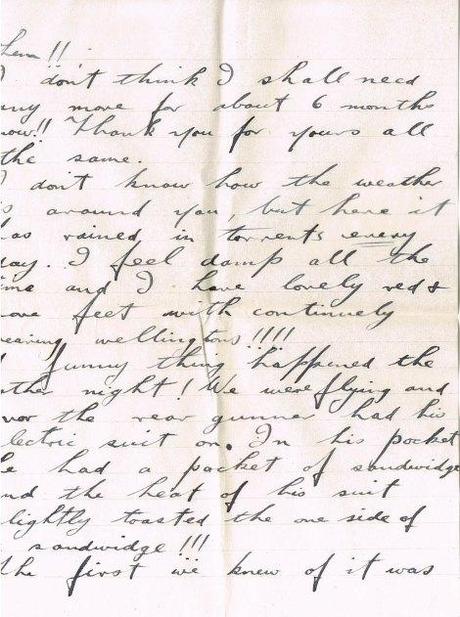 them!!
I don't think I shall need
any more for about 6 months
now!! Thank you for yours all
the same.
I don't know how the weather
is around you, but here it
has rained in torrents every
day. I feel damp all the
time and I have lovely red &
sore feet with continuely
wearing wellingtons!!!!
A funny thing happened the
other night! We were flying and
the rear gunner had his
electric suit on. In his pocket
he had a packet of sandwidge
and the heat of his suit
slightly toasted the one side of
sandwidge!!!
The first we knew of it was